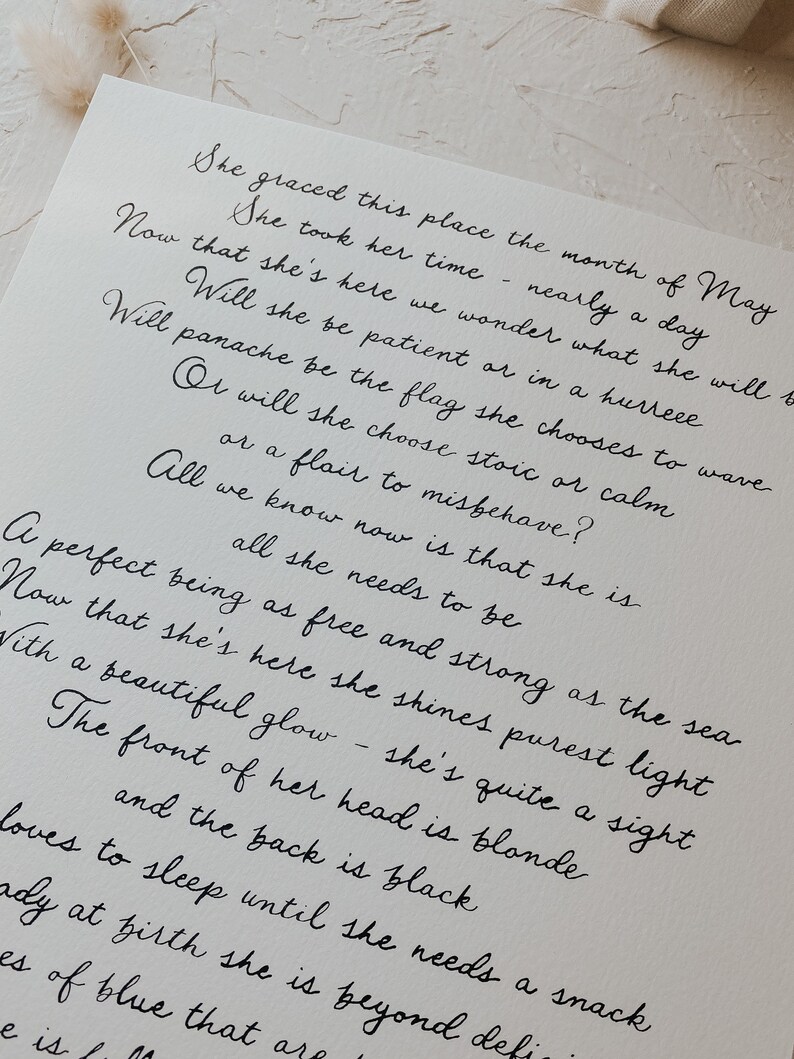 She graced this place the month of May
She took her time - nearly a day
Now that she's here we wonder what she will
Will she be patient or in a hurreee
Will panache be the flag she chooses to wave
Or will she choose stoic or calm
or a flair to misbehave?
All we know now is that she is
all she needs to be
A perfect being as free and strong as the sea
Now that she's here she shines purest light
With a beautiful glow - she's quite a sight
The front of her head is blonde
and the back is black
loves to sleep until she needs a snack
at birth she is beyond
of blue that are
is